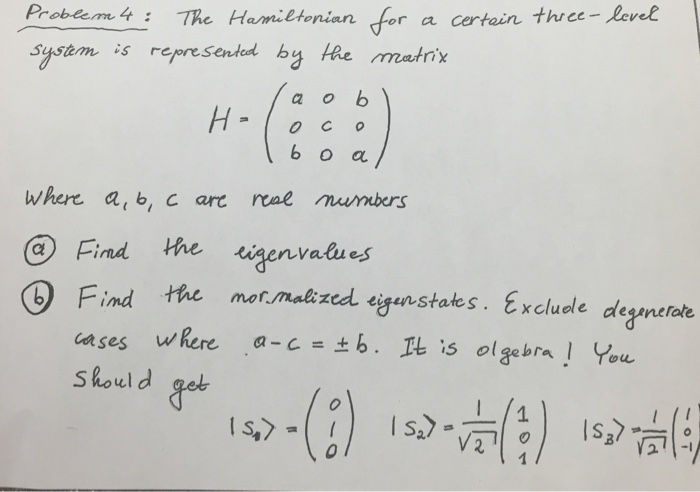 Problem 4: The Hamiltonian for a certain three-level
system is represented by the matrix
H = ( a o b
o c o
b o a )
where a, b, c are real numbers
(a) Find the eigenvalues
(b) Find the normalized eigenstates. Exclude degenerate
cases where a-c = ±b. It is olgebra! You
should get
|S₁> = (0 1 0) |S₂> = 1/√2 (1 0 1) |S₃> = 1/√2 (1 0 -1)